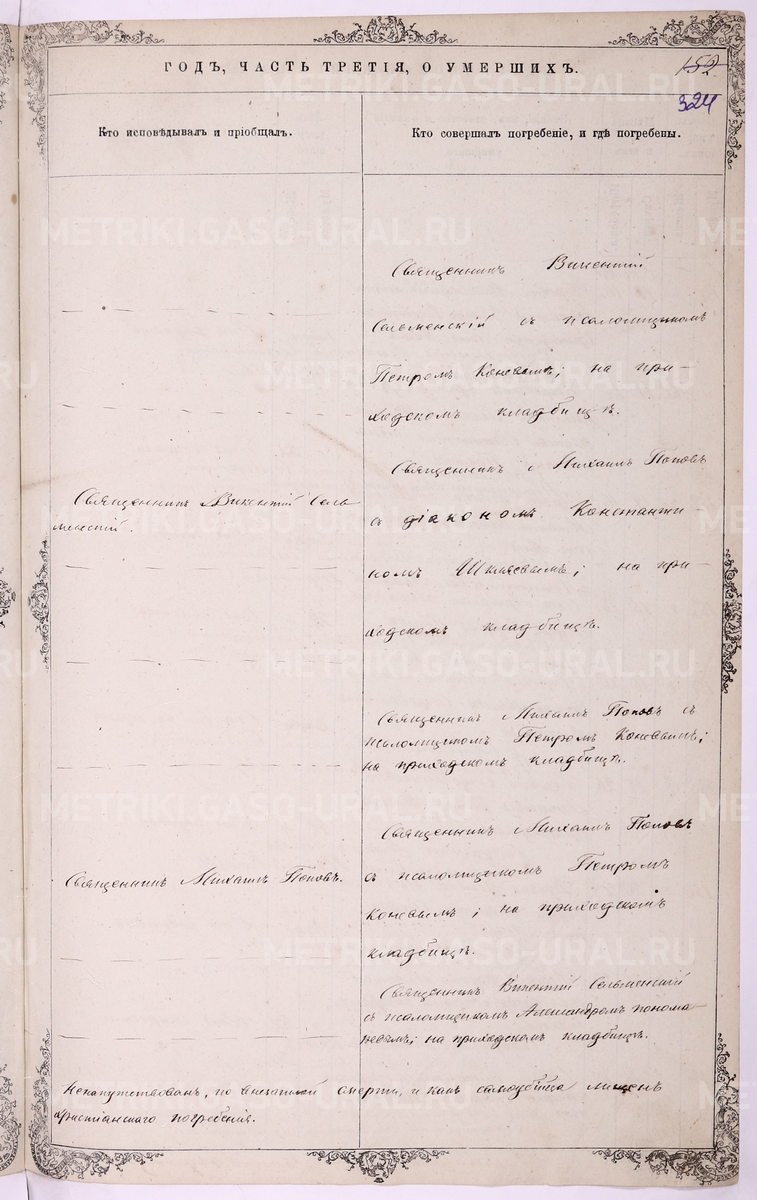 ГОДЪ, ЧАСТЬ ТРЕТІЯ, О УМЕРШИХЪ.
152
324
Кто исповѣдывалъ и пріобщалъ.
Кто совершалъ погребеніе, и гдѣ погребены.
METRIKI.GASO-URAL.RU
Священникъ Викентій
Сельменскій съ псаломщикомъ
Петромъ Коневымъ; на при-
ходскомъ кладбищѣ.
Священникъ Михаилъ Поповъ
съ діакономъ Константи-
номъ Шкляевымъ; на при-
ходскомъ кладбищѣ.
Священникъ Викентій Сель
менскій.
Священникъ Михаилъ Поповъ съ
псаломщикомъ Петромъ Коневымъ;
на приходскомъ кладбищѣ.
Священникъ Михаилъ Поповъ
съ псаломщикомъ Петромъ
Коневымъ; на приходскомъ
кладбищѣ.
Священникъ Михаилъ Поповъ.
Священникъ Викентій Сельменскій
съ псаломщикомъ Александромъ Понома
ревымъ; на приходскомъ кладбищѣ.
Ненапутствованъ, по внезапной смерти, и какъ самоубійца лишенъ
христіанскаго погребенія.